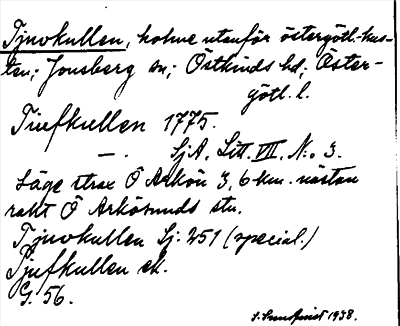 Tjuvkullen, holme utanför östergötl.-kus-
ten; Jonsberg sn; Östkinds hd; Öster-
götl. l.
Tiufkullen 1775.
—. SjA, Litt. VII, N:o 3.
Läge strax Ö Arkön 3,6 km. nästan
rakt Ö Arkösunds stn.
Tjuvkullen Sj. 251 (special.)
Tjufkullen ek.
G. 56.
1938.